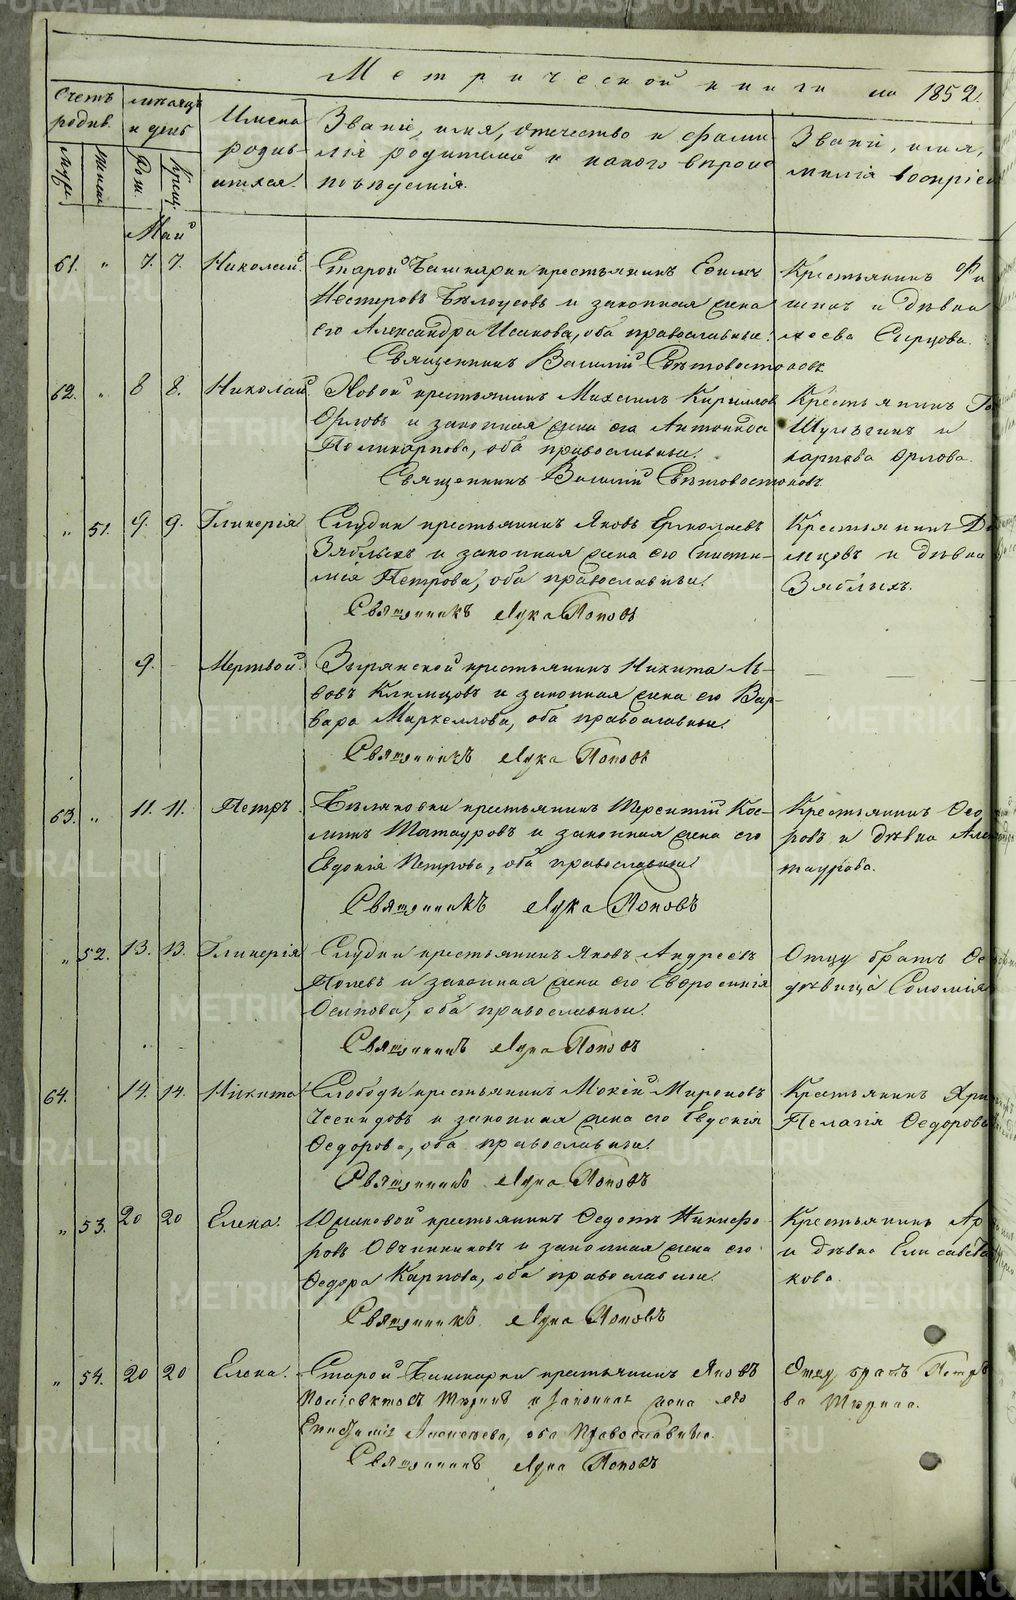 Метрической книги на 1852.
Счетъ родив.
Муж.
Женск.
Месяцъ и день
Рож.
Крещ.
Имена родив-
шихся.
Званіе, имя, отчество и фами-
лія родителей и какого вѣроис-
повѣданія.
Званіе, имя,
милія воспріем
Май
61. " 7. 7. Николай. Старой Башкарки крестьянинъ Ефимъ
Нестеровъ Бѣлоусовъ и законная жена
его Александра Исакова, оба православные.
Священникъ Василій Свѣтовостоковъ
Крестьянинъ
и дѣвка
Сырцова.
62. " 8 8. Николай. Новой крестьянинъ Михаилъ Кириллов
Орловъ и законная жена его Антонида
Поликарпова, оба православные.
Священникъ Василій Свѣтовостоковъ
Крестьянинъ
Шумъгинъ и
карпова Орлова.
" 51. 9. 9. Гликерія Слудки крестьянинъ Яковъ Ермолаевъ
Зяблыхъ и законная жена его Еписти-
мія Петрова, оба православные.
Священникъ Лука Поповъ
Крестьянинъ
и дѣвка
Зяблыхъ.
9. - Мертвой. Зырянской крестьянинъ Никита Ль-
вовъ Климцовъ и законная жена его Вар-
вара Маркеллова, оба православные.
Священникъ Лука Поповъ
63. " 11. 11. Петръ Бѣляковки крестьянинъ Терентій Кос-
минъ Татауровъ и законная жена его
Евдокія Петрова, оба православные
Священникъ Лука Поповъ
Крестьянинъ Ѳедо
ровъ и дѣвка Алек
таурова.
" 52. 13. 13. Гликерія Слудки крестьянинъ Яковъ Андреевъ
Полевъ и законная жена его Евфросинія
Осипова, оба православные.
Священникъ Лука Поповъ
Отцу братъ
дѣвица Соломія
64. 14. 14. Никита Слободы крестьянинъ Мокій Мироновъ
и законная жена его Евдокія
Ѳедорова, оба православные.
Священникъ Лука Поповъ
Крестьянинъ
Пелагія Ѳедорова
" 53. 20 20 Елена. Юрмаковой крестьянинъ Ѳедотъ Никифо-
ровъ Овчинниковъ и законная жена его
Ѳедора Карпова, оба православные.
Священникъ Лука Поповъ
Крестьянинъ
и дѣвка Елисавета
кова.
" 54. 20 20 Елена. Старой Башкарки крестьянинъ Яковъ
Поліевктовъ и законная жена его
оба православные.
Священникъ Лука Поповъ
Отцу братъ Петръ
METRIKI.GASO-URAL.RU